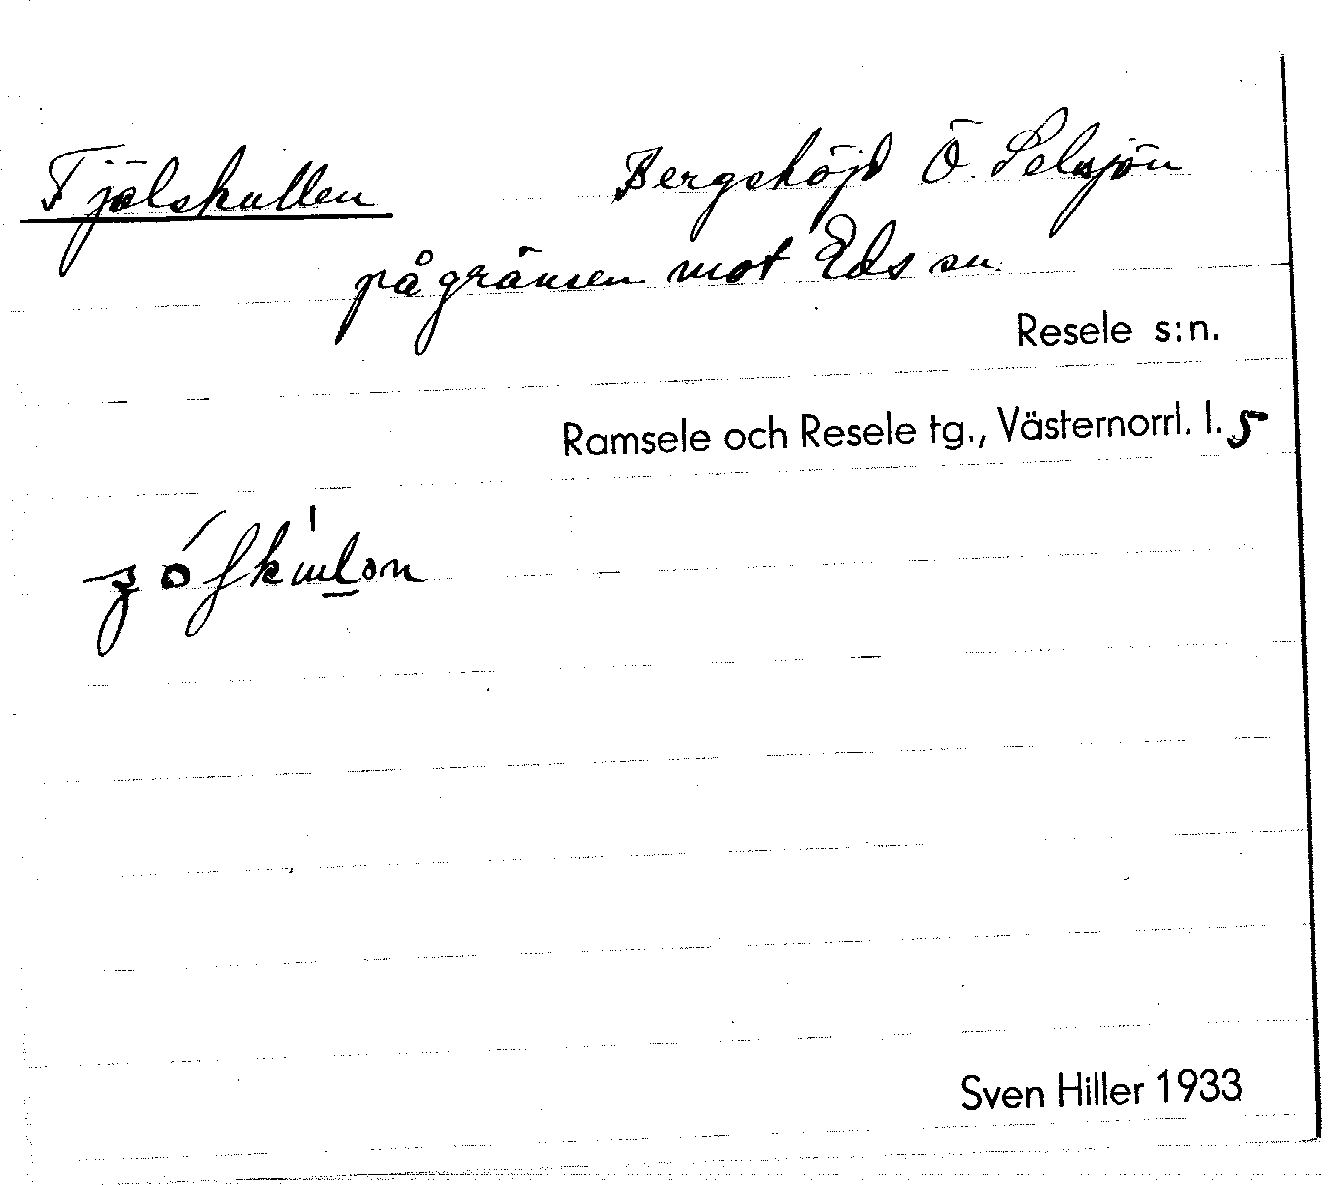 Tjälskullen Bergshöjd Ö. Selsjön
på gränsen mot Eds sn.
Resele s:n.
Ramsele och Resele tg., Västernorrl. l. 5
Sven Hiller 1933